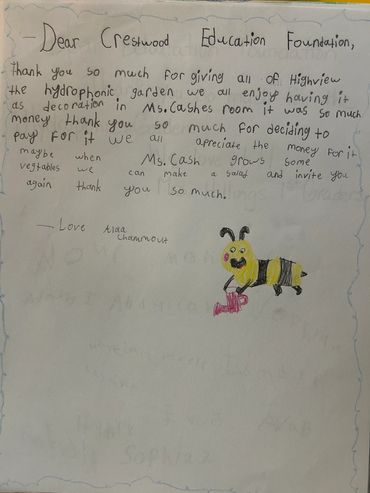 - Dear Crestwood Education Foundation,
thank you so much for giving all of Highview
the hydrophonic garden we all enjoy having it
as decoration in Ms. Cashes room it was so much
money thank you so much for deciding to
pay for it we all appreciate the money for it
maybe when Ms. Cash grows some
vegtables we can make a salad and invite you
again thank you so much.
- Love Alaa
Chammout